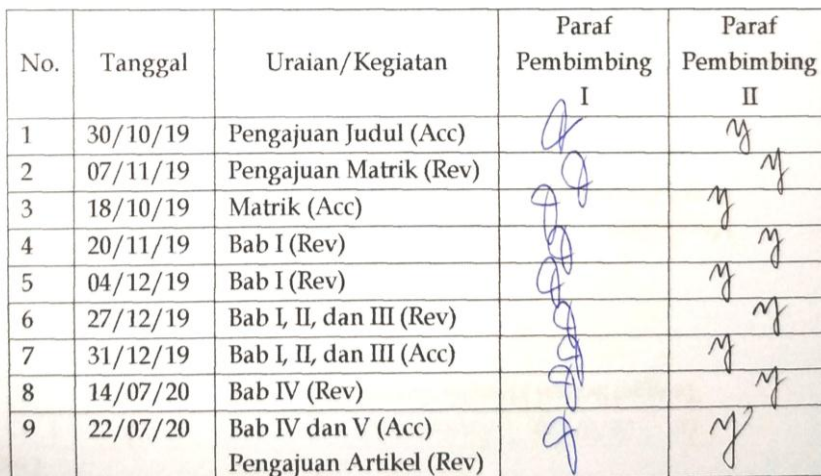 No. Tanggal Uraian/Kegiatan Paraf Pembimbing I Paraf Pembimbing II
1 30/10/19 Pengajuan Judul (Acc)
2 07/11/19 Pengajuan Matrik (Rev)
3 18/10/19 Matrik (Acc)
4 20/11/19 Bab I (Rev)
5 04/12/19 Bab I (Rev)
6 27/12/19 Bab I, II, dan III (Rev)
7 31/12/19 Bab I, II, dan III (Acc)
8 14/07/20 Bab IV (Rev)
9 22/07/20 Bab IV dan V (Acc)
Pengajuan Artikel (Rev)